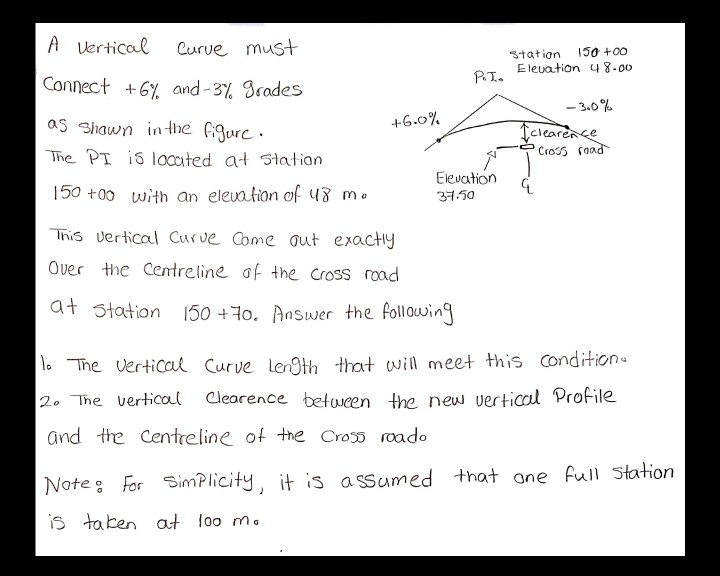 A vertical curve must
Connect +6% and -3% grades
as shown in the figure.
The PI is located at Station
150 +00 with an elevation of 48 m.
This vertical Curve Come out exactly
Over the Centreline of the cross road
at Station 150 +70. Answer the following
1. The vertical Curve Length that will meet this condition.
2. The vertical Clearence between the new vertical Profile
and the Centreline of the Cross road.
Note: For Simplicity, it is assumed that one full Station
is taken at 100 m.
Station 150 +00
Elevation 48.00
P.I.
+6.0%
-3.0%
clearence
Cross road
Elevation
37.50
CL